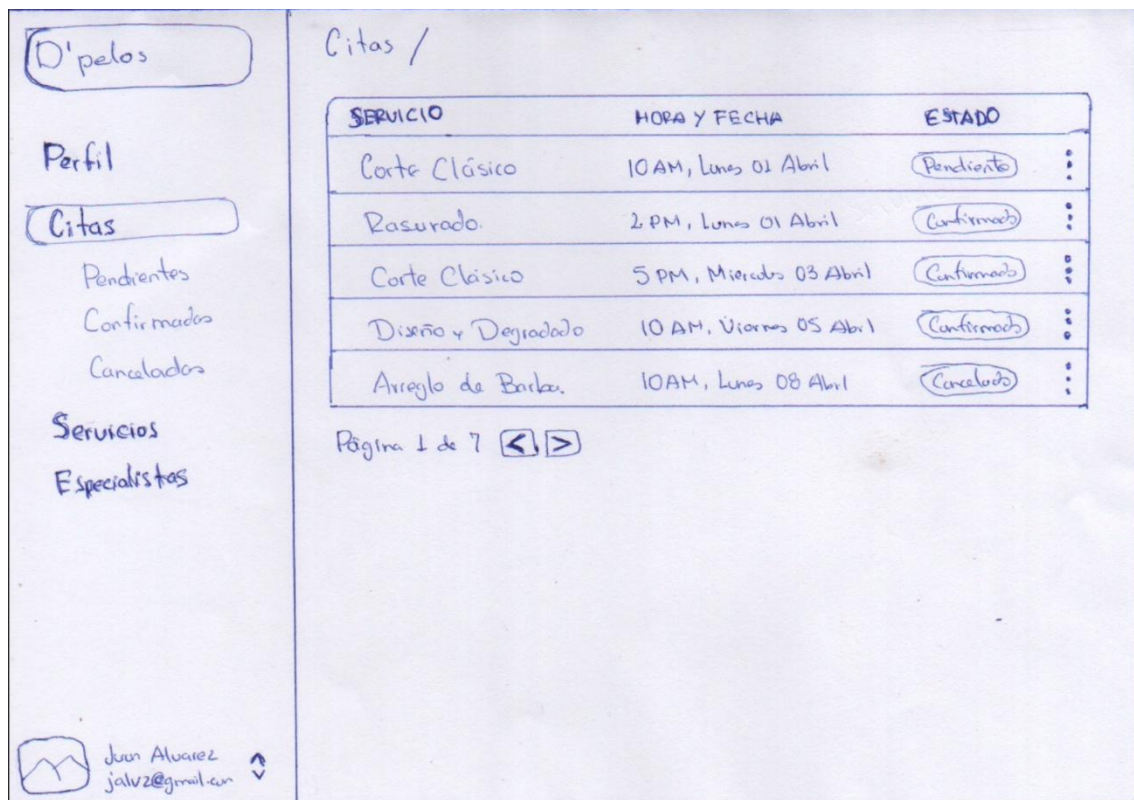 D'pelos
Perfil
Citas
Pendientes
Confirmadas
Canceladas
Servicios
Especialistas
Juan Alvarez
jalvz@gmail.com
Citas /
SERVICIO HORA Y FECHA ESTADO
Corte Clásico 10 AM, Lunes 01 Abril Pendiente
Rasurado. 2 PM, Lunes 01 Abril Confirmado
Corte Clásico 5 PM, Miercoles 03 Abril Confirmado
Diseño y Degradado 10 AM, Viernes 05 Abril Confirmado
Arreglo de Barba. 10AM, Lunes 08 Abril Cancelado
Página 1 de 7 < >